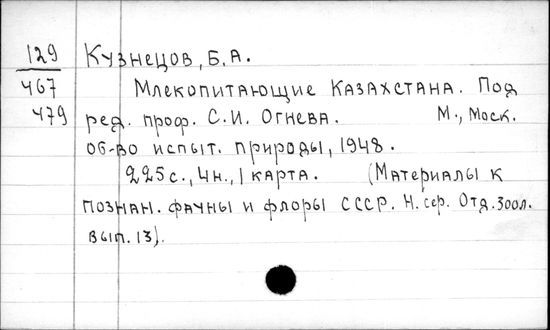 129 Кузнецов, Б.А.
467 Млекопитающие Казахстана. Под
479 ред. проф. С.И. Огнева. М., Моск.
об-во испыт. природы, 1948.
225с., 4н., 1 карта. (Материалы к
познан. фауны и флоры СССР. Н. сер. Отд. Зоол.
вып. 13).